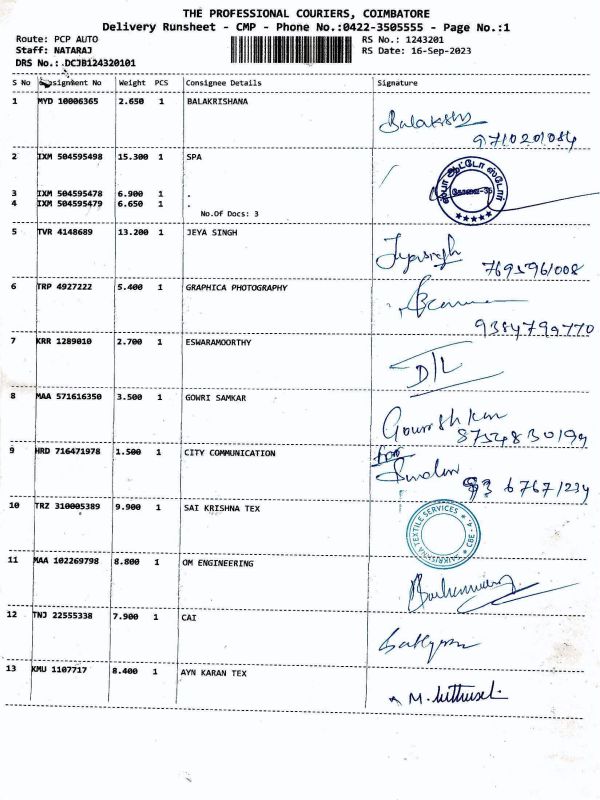 THE PROFESSIONAL COURIERS, COIMBATORE
Delivery Runsheet - CMP - Phone No.:0422-3505555 - Page No.:1
Route: PCP AUTO RS No.: 1243201
Staff: NATARAJ RS Date: 16-Sep-2023
DRS No.: DCJB124320101
S No Consignment No Weight PCS Consignee Details Signature
1 MYD 10006365 2.650 1 BALAKRISHANA
9710201084
2 IXM 504595498 15.300 1 SPA
ஸ்பா ஆட்டோ ஸ்டோர்
3 IXM 504595478 6.900 1 .
4 IXM 504595479 6.650 1 .
No.Of Docs: 3
5 TVR 4148689 13.200 1 JEYA SINGH
7695961008
6 TRP 4927222 5.400 1 GRAPHICA PHOTOGRAPHY
9384799770
7 KRR 1289010 2.700 1 ESWARAMOORTHY
D/L
8 MAA 571616350 3.500 1 GOWRI SAMKAR
8754830199
9 HRD 716471978 1.500 1 CITY COMMUNICATION
93 67671234
10 TRZ 310005389 9.900 1 SAI KRISHNA TEX
SAIKRISHNA TEXTILE SERVICES CBE - 4.
11 MAA 102269798 8.800 1 OM ENGINEERING
12 TNJ 22555338 7.900 1 CAI
13 KMU 1107717 8.400 1 AYN KARAN TEX